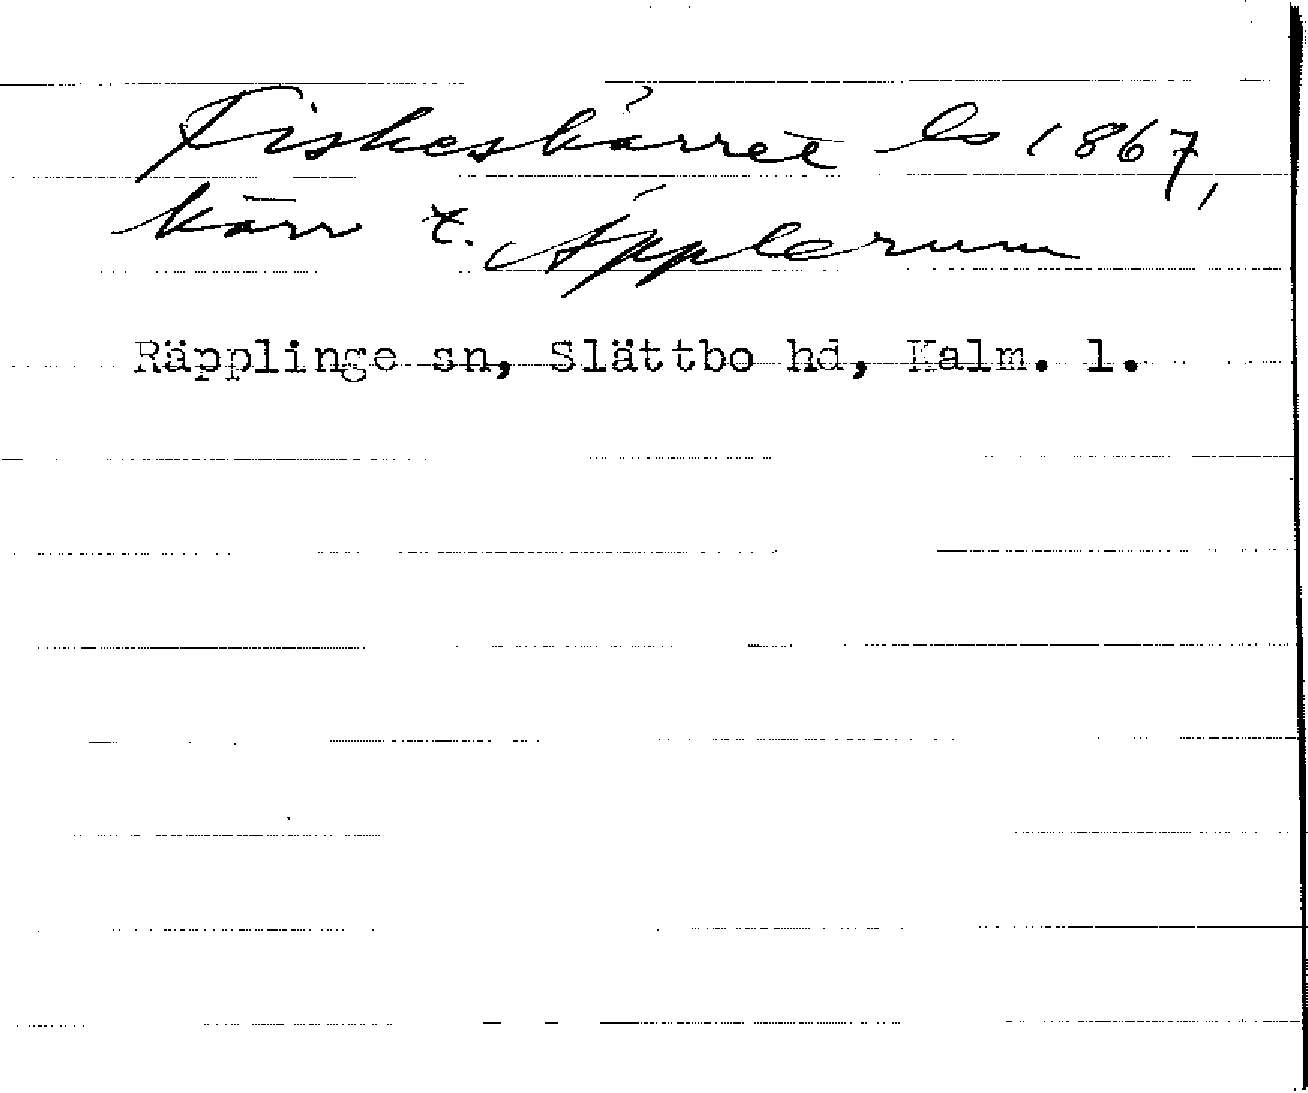 Fiskeskärret ls 1867,
kärr t. Äpplerum
Räpplinge sn, Slättbo hd, Kalm. l.